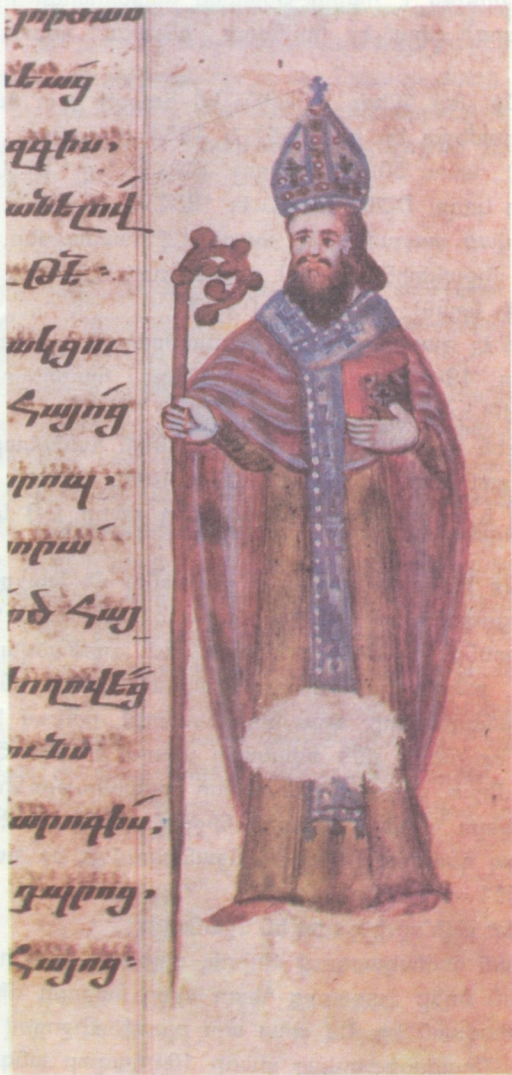 եաց
զգիս,
անելով
Թէ։
ակցու
Հայոց
րոպ.
որա
րծ Հայ
ժողովեց
ունս
արոգիս,
դպրոց,
Հայոց։